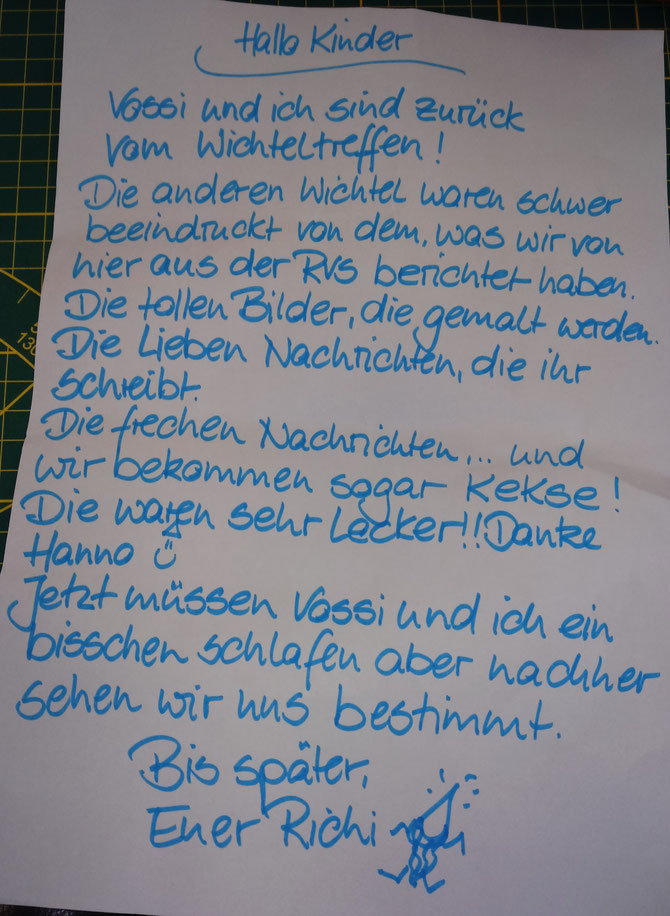 Hallo Kinder
Vossi und ich sind zurück
vom Wichteltreffen!
Die anderen Wichtel waren schwer
beeindruckt von dem, was wir von
hier aus der RVS berichtet haben.
Die tollen Bilder, die gemalt werden.
Die lieben Nachrichten, die ihr
schreibt.
Die frechen Nachrichten... und
wir bekommen sogar Kekse!
Die waren sehr lecker!! Danke
Hanno
Jetzt müssen Vossi und ich ein
bisschen schlafen aber nachher
sehen wir uns bestimmt.
Bis später,
Euer Richi